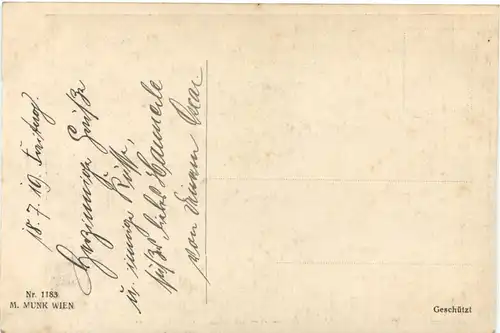 18.7.19. Freitag.
Herzinnige Grüße
u. innige Küsse,
süßes liebes Hannerle
von Deinem Oscar.
Nr. 1183
M. MUNK WIEN
Geschützt